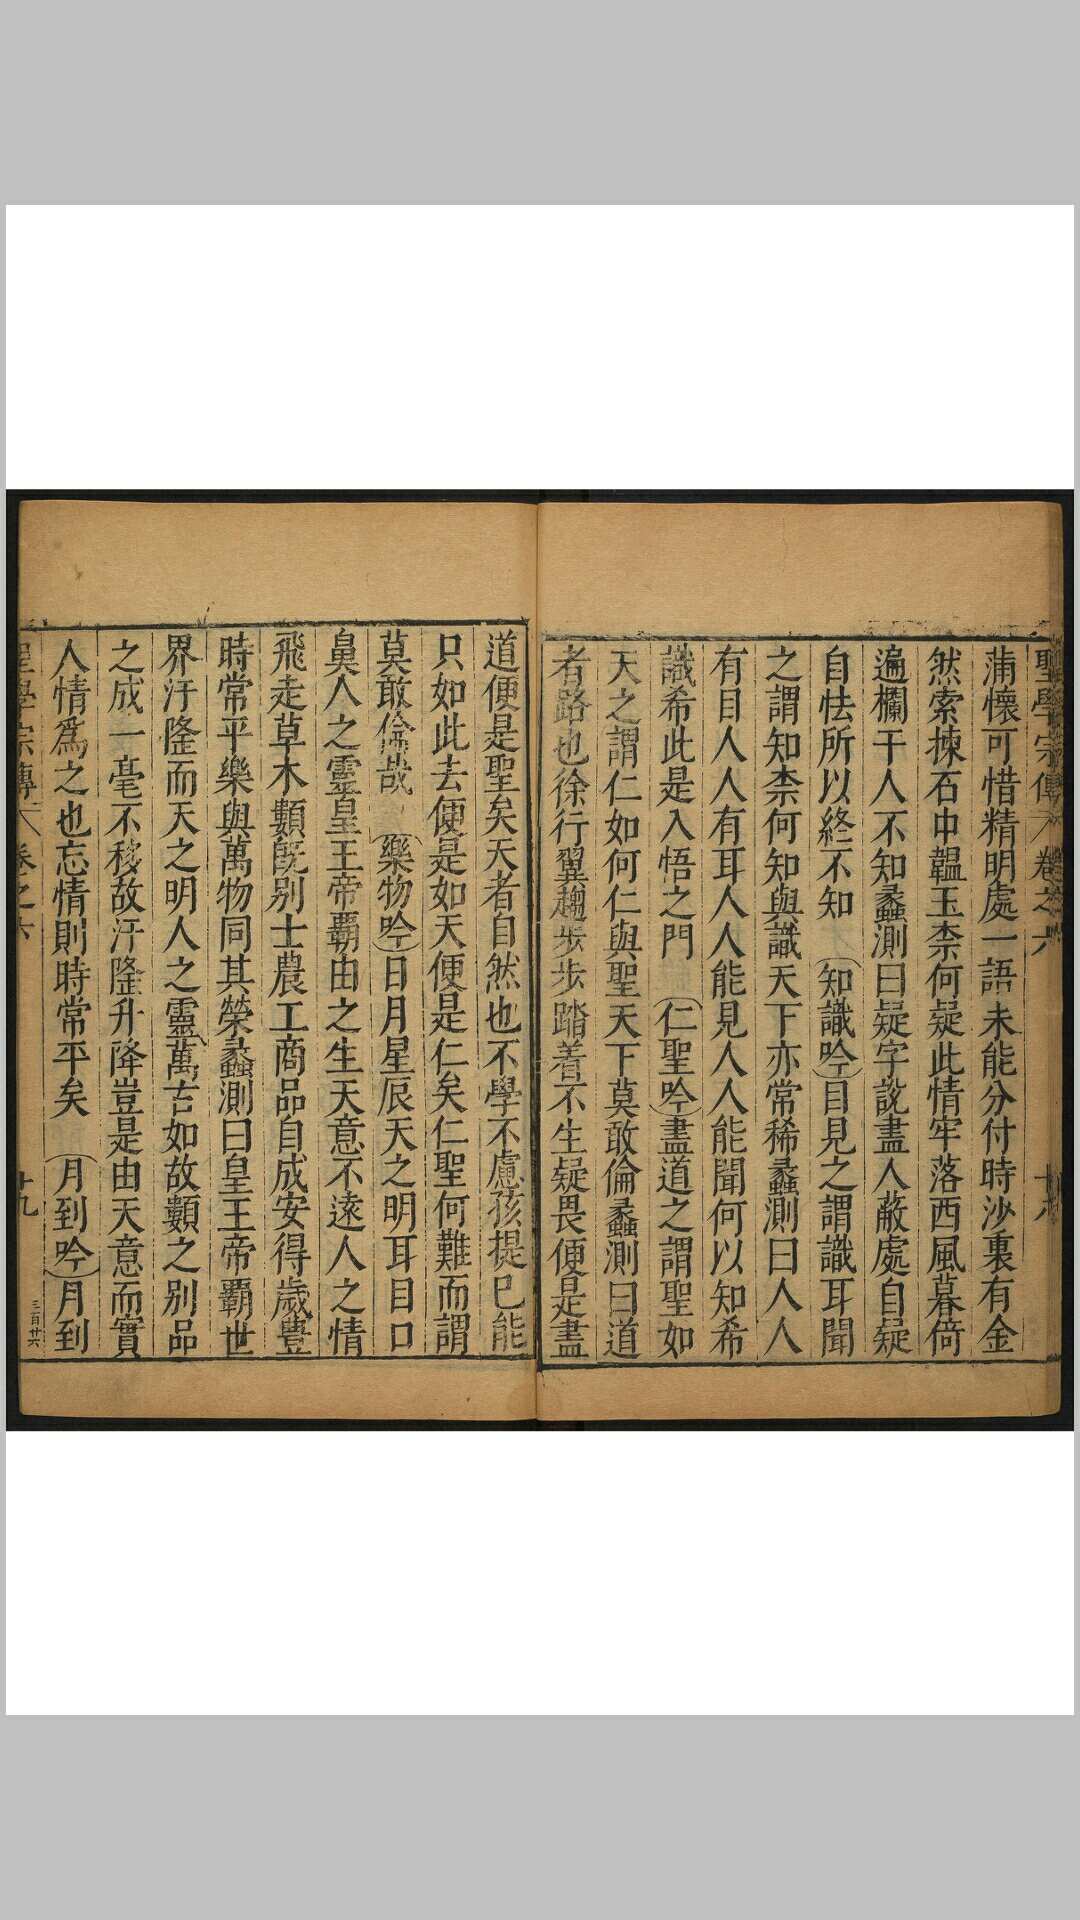 聖學宗傳 卷之六 十八
蒲懷可惜精明處一語未能分付時沙裏有金
然索揀石中韞玉柰何疑此情牢落西風暮倚
遍欄干人不知蠡測曰疑字說盡人蔽處自疑
自怯所以終不知 知識吟 目見之謂識耳聞
之謂知柰何知與識天下亦常稀蠡測曰人人
有目人人有耳人人能見人人能聞何以知希
識希此是入悟之門 仁聖吟 盡道之謂聖如
天之謂仁如何仁與聖天下莫敢倫蠡測曰道
者路也徐行翼趨步步踏着不生疑畏便是盡
道便是聖矣天者自然也不學不慮孩提已能
只如此去便是如天便是仁矣仁聖何難而謂
莫敢倫哉 樂物吟 日月星辰天之明耳目口
鼻人之靈皇王帝覇由之生天意不遠人之情
飛走草木類旣别士農工商品自成安得歲豊
時常平樂與萬物同其榮蠡測曰皇王帝覇世
界汙隆而天之明人之靈萬古如故類之别品
之成一毫不移故汙隆升降豈是由天意而實
人情爲之也忘情則時常平矣 月到吟 月到
聖學宗傳 卷之六 十九 三百廿六